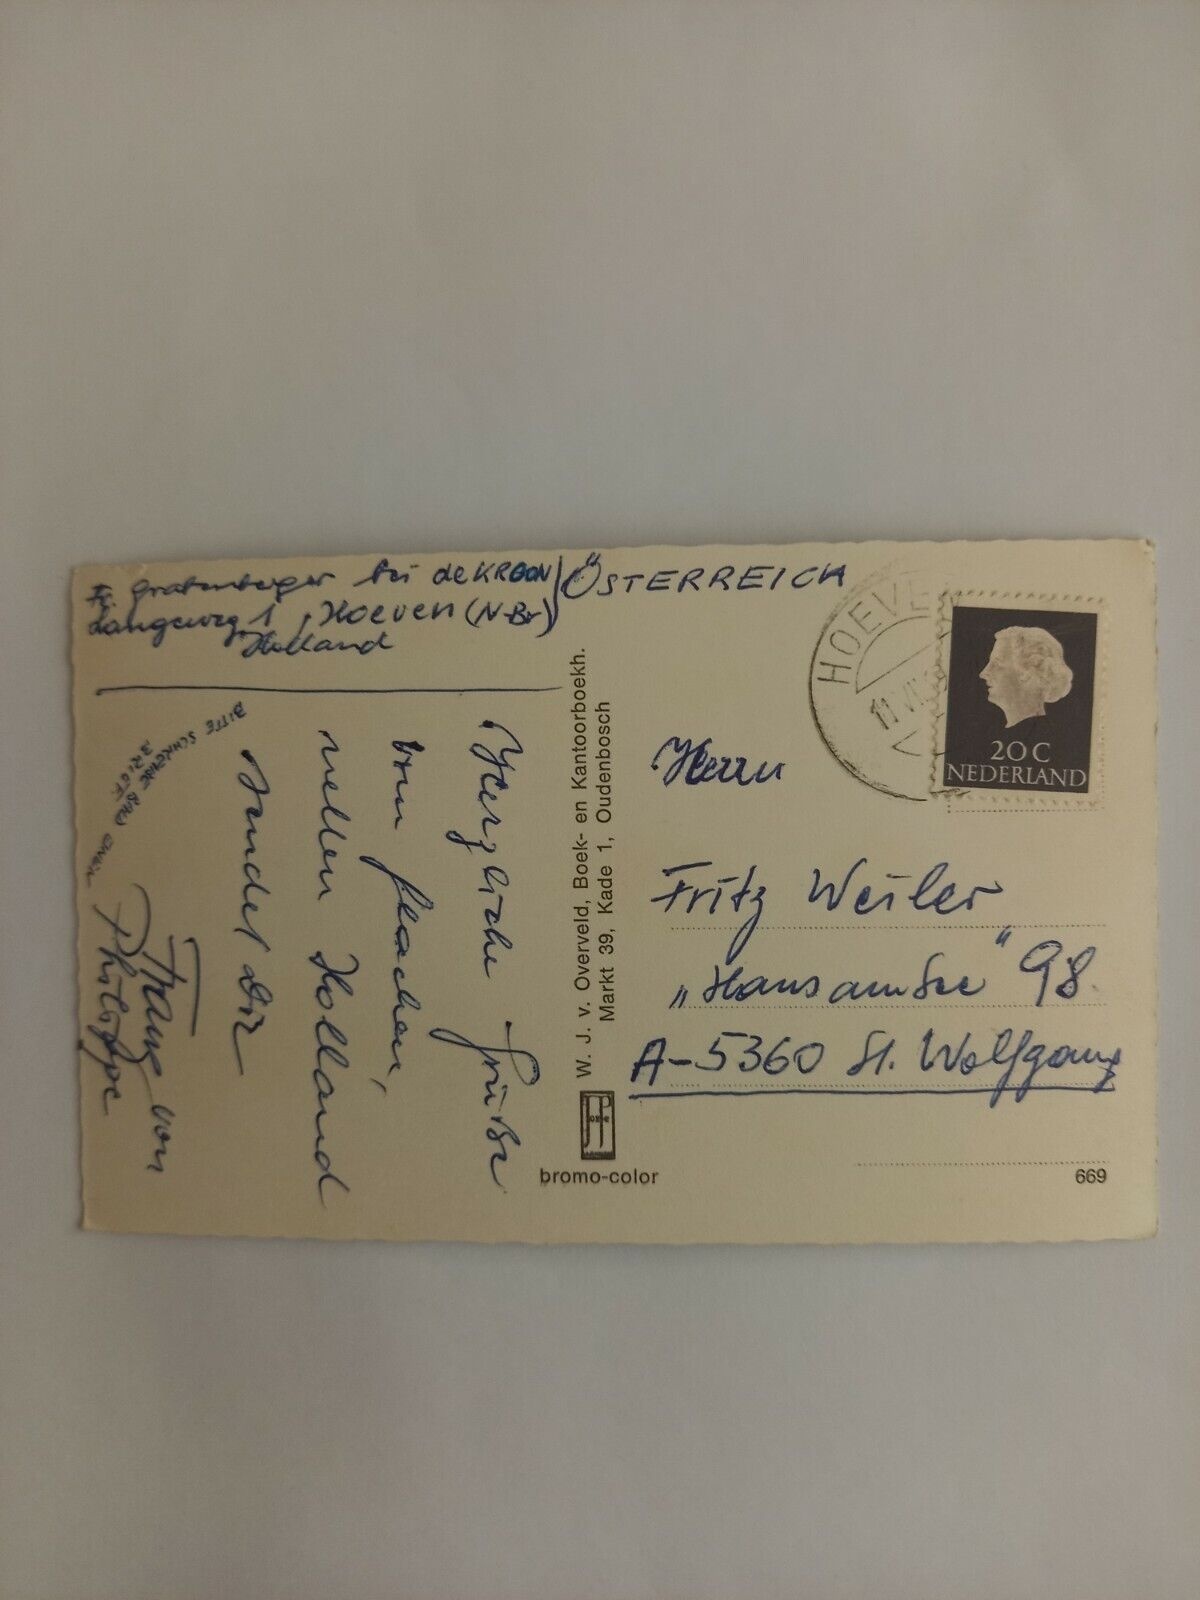 Fr. Grabenberger bei de KROON
Langeweg 1, Hoeven (N-Br)
Holland
ÖSTERREICH
HOEVE
11 VII
20 C
NEDERLAND
Herzliche Grüße
vom flachen,
netten Holland
sendet Dir
Franz von
Philippe
BITTE SCHREIBE
BRIEF
W. J. v. Overveld, Boek- en Kantoorboekh.
Markt 39, Kade 1, Oudenbosch
bromo-color
Herrn
Fritz Weiler
„Haus am See“ 98.
A-5360 St. Wolfgang
669